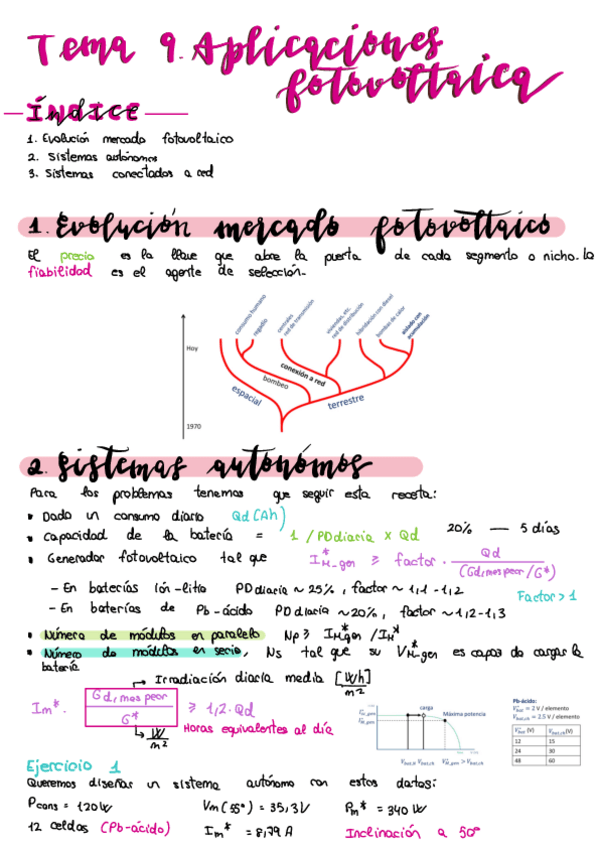 Tema 9. Aplicaciones
fotovoltaica
ÍNDICE
1. Evolución mercado fotovoltaico
2. Sistemas autónomos
3. Sistemas conectados a red
1. Evolución mercado fotovoltaico
El precio es la llave que abre la puerta de cada segmento o nicho. la
fiabilidad es el agente de selección.
consumo humano
regadío
centrales
red de transmisión
viviendas, etc.
red de distribución
hibridación con diesel
bombas de calor
aislado con
acumulación
Hoy
conexión a red
bombeo
espacial
terrestre
1970
2. Sistemas autonómos
Para los problemas tenemos que seguir esta receta:
• Dado un consumo diario Qd (Ah)
• Capacidad de la batería = 1 / PDdiaria x Qd 20% — 5 días
• Generador fotovoltaico tal que I*M-gen ≥ factor · Qd / (Gd,mespeor / G*)
– En baterías ión-litio PDdiaria ~ 25%, factor ~ 1,1 - 1,2 Factor > 1
– En baterías de Pb-ácido PDdiaria ~ 20%, factor ~ 1,2 - 1,3
• Número de módulos en paralelo Np ≥ I*M-gen / IM*
• Número de módulos en serie, Ns tal que su V*M-gen es capas de cargar la
batería
→ Irradiación diaria media [Wh/m2]
Im* · Gd, mes peor / G* ≥ 1,2 · Qd
→ W/m2 Horas equivalentes al día
carga
Máxima potencia
Pb-ácido:
= 2 V / elemento
= 2.5 V / elemento
Vbat (V) Vbat,ch (V)
12 15
24 30
48 60
Ejercicio 1
Queremos diseñar un sistema autónomo con estos datos:
Pcons = 120W Vm (55°) = 35,3V Pm* = 340 W
12 celdas (Pb-ácido) Im* = 8,79 A Inclinación a 50°